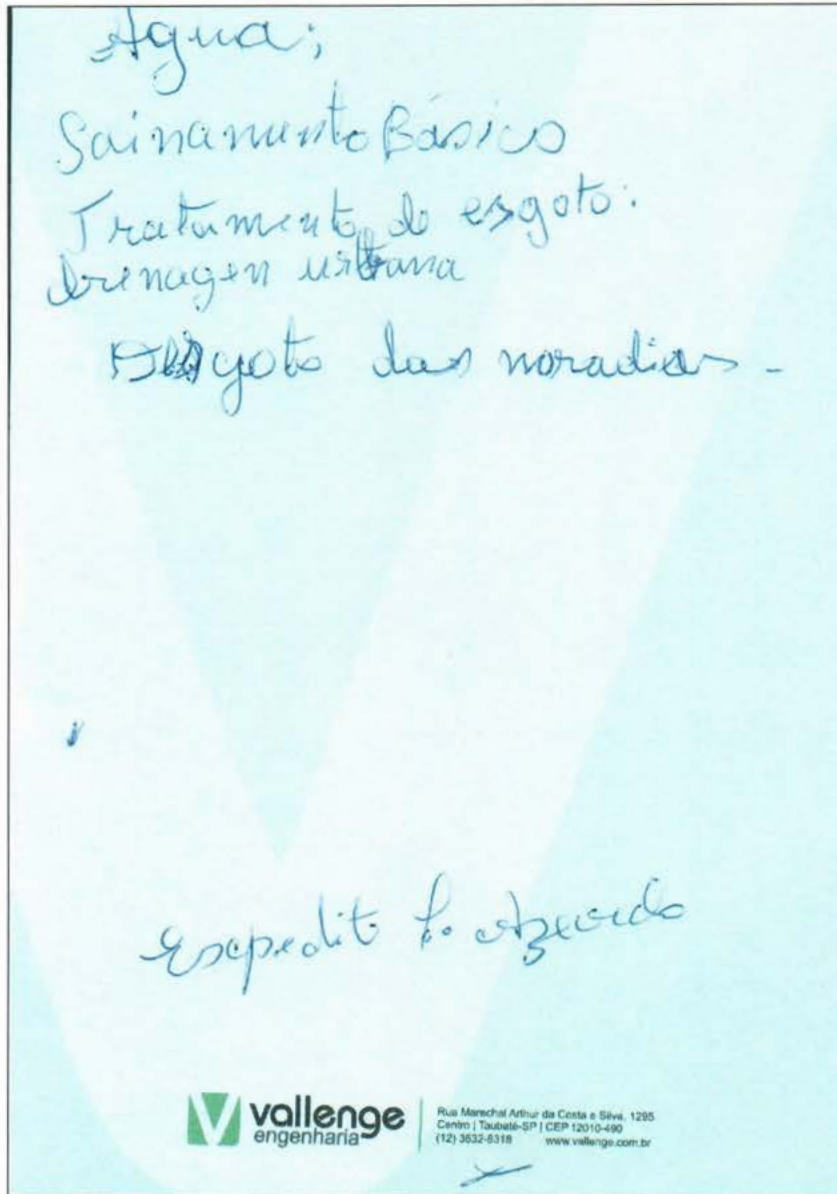 Agua;
Sainamento Básico
Tratamento de esgoto.
drenagen urbana
esgoto das moradias -
Esepedito P. Azevedo
vallenge
engenharia
Rua Marechal Arthur da Costa e Silva, 1295
Centro | Taubaté-SP | CEP 12010-490
(12) 3632-8318 www.vallenge.com.br